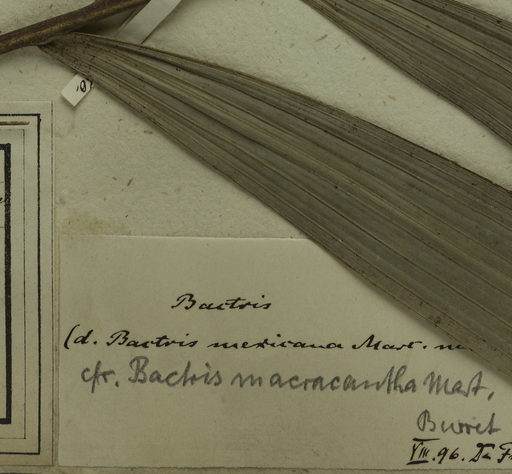 Bactris
(d. Bactris mexicana Mart.
cfr. Bactris macracantha Mart.
Burret
VIII. 96.